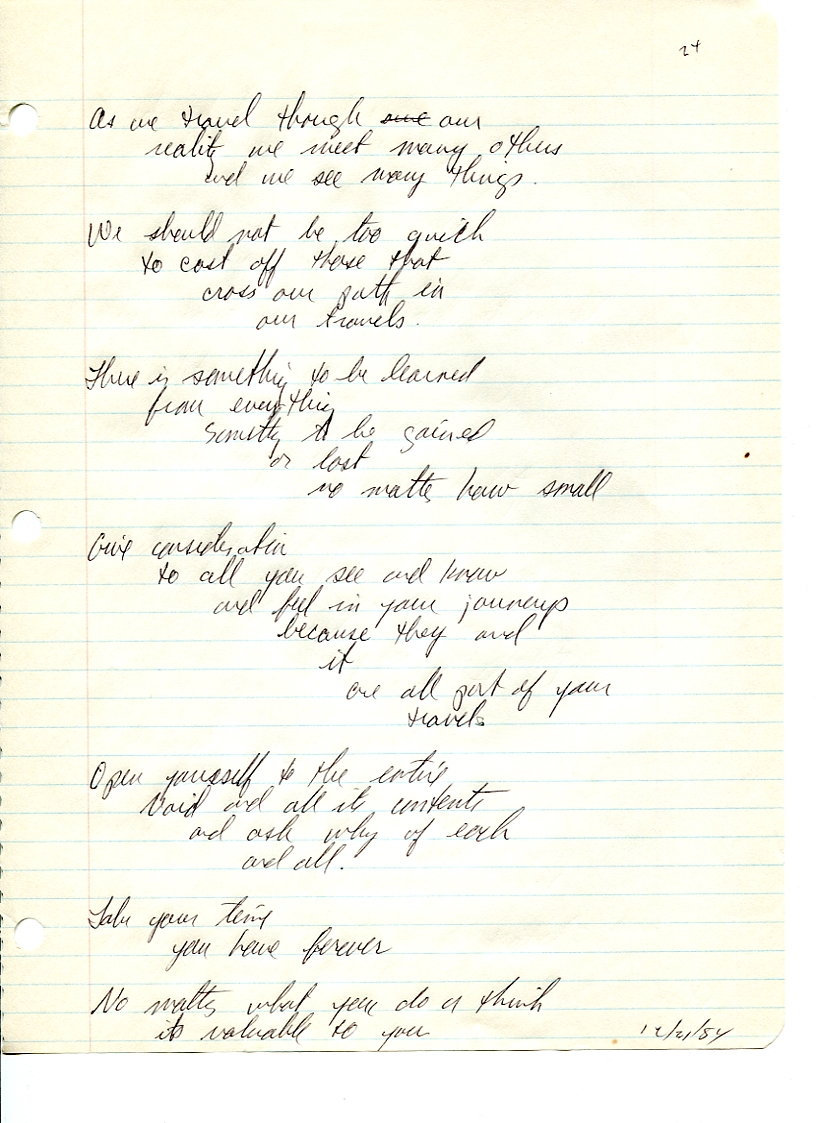 24
As we travel though our
reality we meet many others
and we see many things.
We should not be too quick
to cast off those that
cross our path in
our travels.
There is something to be learned
from everything
Something to be gained
or lost
no matter how small
Give consideration
to all you see and know
and feel in your journeys
because they and
it
are all part of your
travels
Open yourself to the entire
Void and all its contents
and ask why of each
and all.
Take your time
you have forever
No matter what you do or think
its valuable to you
12/21/84